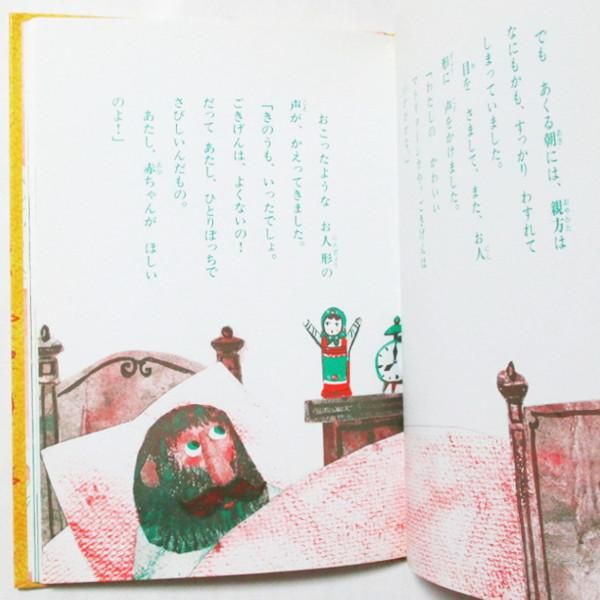 でも　あくる朝には、親方は
なにもかも、すっかり　わすれて
しまっていました。
目を　さまして、また、お人
形に　声をかけました。
「わたしの　かわいい
ごきげんは
おこったような　お人形の
声が、かえってきました。
「きのうも、いったでしょ。
ごきげんは、よくないの！
だって　あたし、ひとりぼっちで
さびしいんだもの。
あたし、赤ちゃんが　ほしい
のよ！」